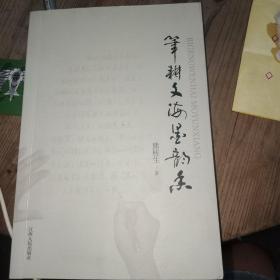 笔耕文海墨韵香
BIGENGWENHAI MOYUNXIANG
著
江西人民出版社